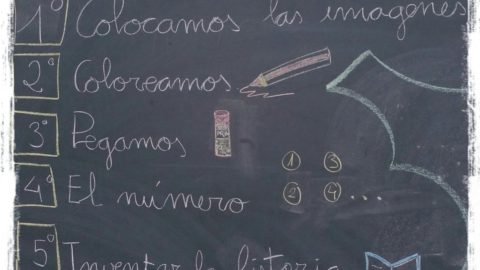 1º Colocamos las imagenes
2º Coloreamos.
3º Pegamos
4º El número 1 3 2 4 ...
5º Inventar la historia